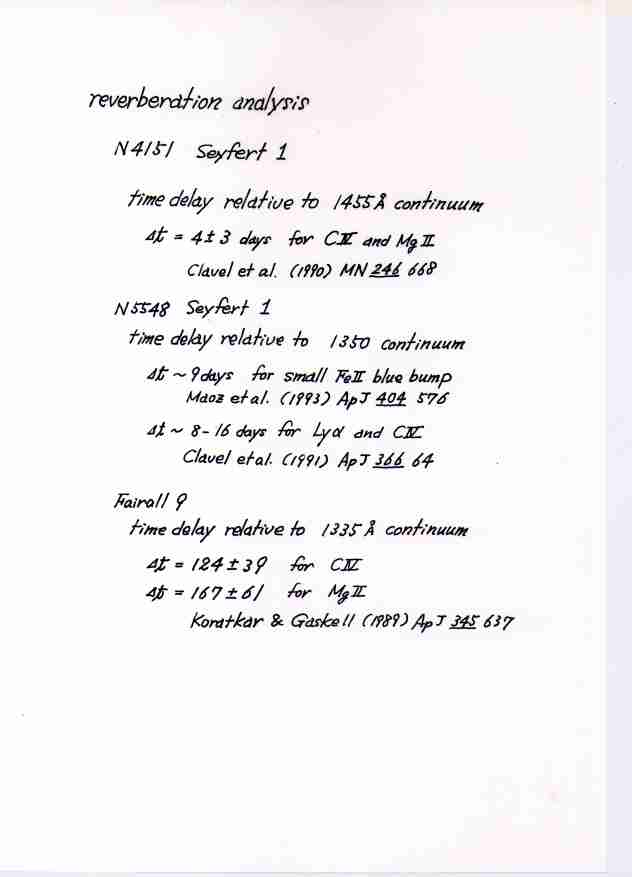 reverberation analysis
N4151 Seyfert 1
time delay relative to 1455Å continuum
Δt = 4±3 days for CIV and MgII
Clavel et al. (1990) MN 246 668
N5548 Seyfert 1
time delay relative to 1350 continuum
Δt ~ 9days for small FeII blue bump
Maoz et al. (1993) ApJ 404 576
Δt ~ 8-16 days for Lyα and CIV
Clavel et al. (1991) ApJ 366 64
Fairall 9
time delay relative to 1335 Å continuum
Δt = 124±39 for CIV
Δt = 167±61 for MgII
Koratkar & Gaskell (1989) ApJ 345 637